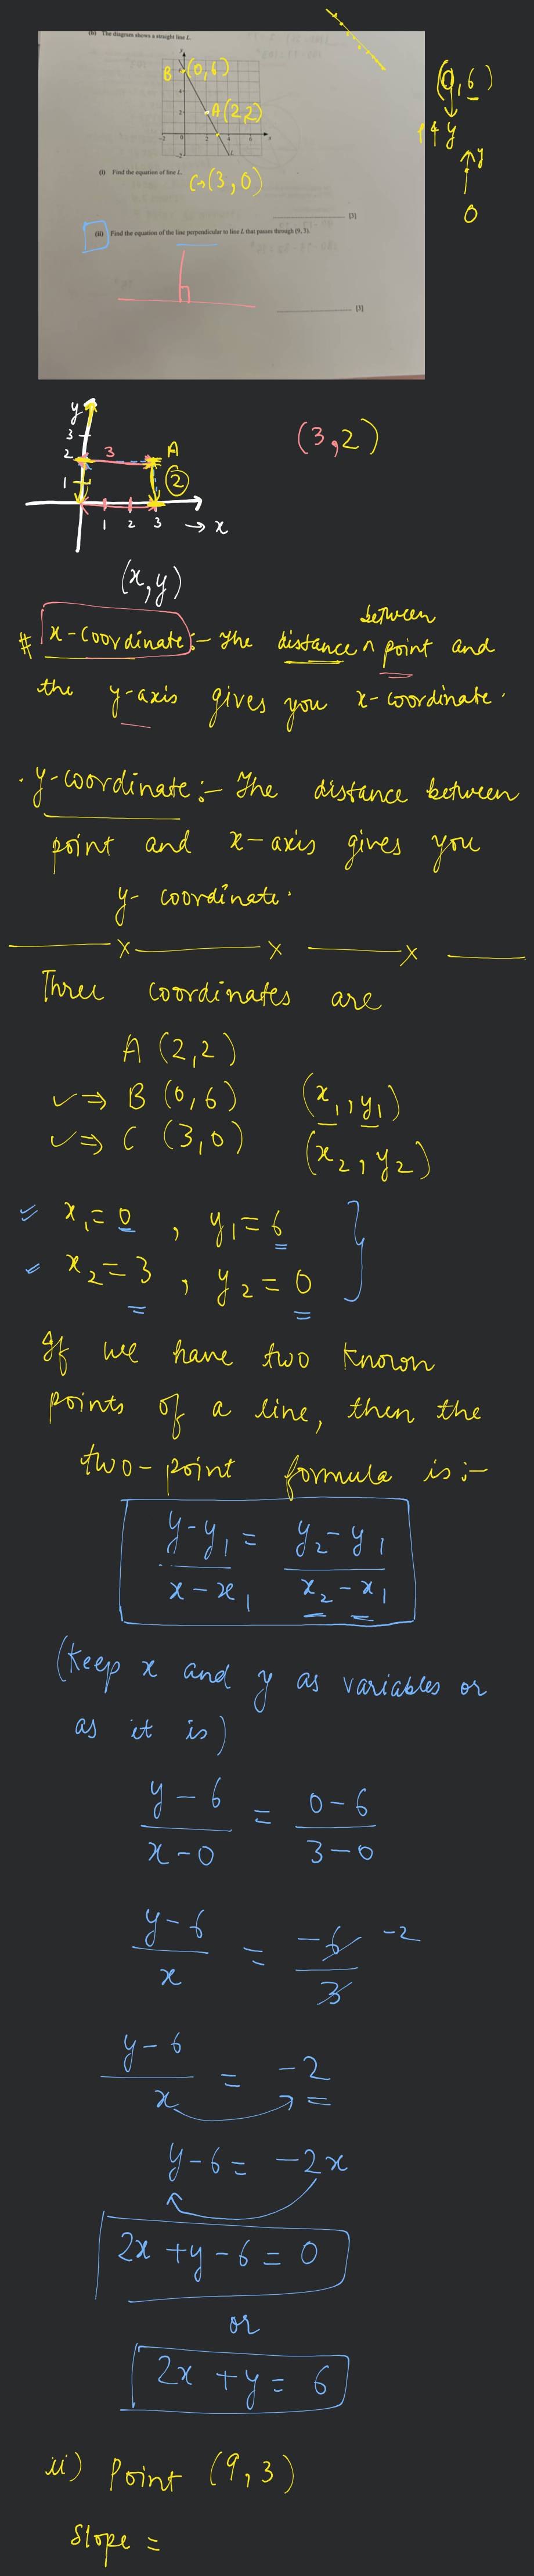 (b) The diagram shows a straight line L.
y
B (0,6)
6
4
A(2,2)
2
-2 0 2 4 6 x
-2
L
C→(3,0)
(0,6)
y
y
0
(i) Find the equation of line L.
[3]
(ii) Find the equation of the line perpendicular to line L that passes through (9, 3).
[3]
y
3
2
1
3
A
2
1 2 3 → x
(3,2)
(x,y)
# x-coordinate:- The distance ^ point and
between
the y-axis gives you x-coordinate.
. y-coordinate:- The distance between
point and x-axis gives you
y- coordinate.
x x x
Three coordinates are
A (2,2)
✓⇒ B (0,6) (x₁,y₁)
✓⇒ C (3,0) (x₂,y₂)
x₁=0 , y₁=6
x₂=3 , y₂=0 }
If we have two known
points of a line, then the
two-point formula is:-
y-y₁ = y₂-y₁
x-x₁ x₂-x₁
(Keep x and y as variables or
as it is)
y-6 = 0-6
x-0 3-0
y-6 = -6 -2
x 3
y-6 = -2
x
y-6 = -2x
2x+y-6=0
or
2x+y=6
ii) Point (9,3)
Slope =